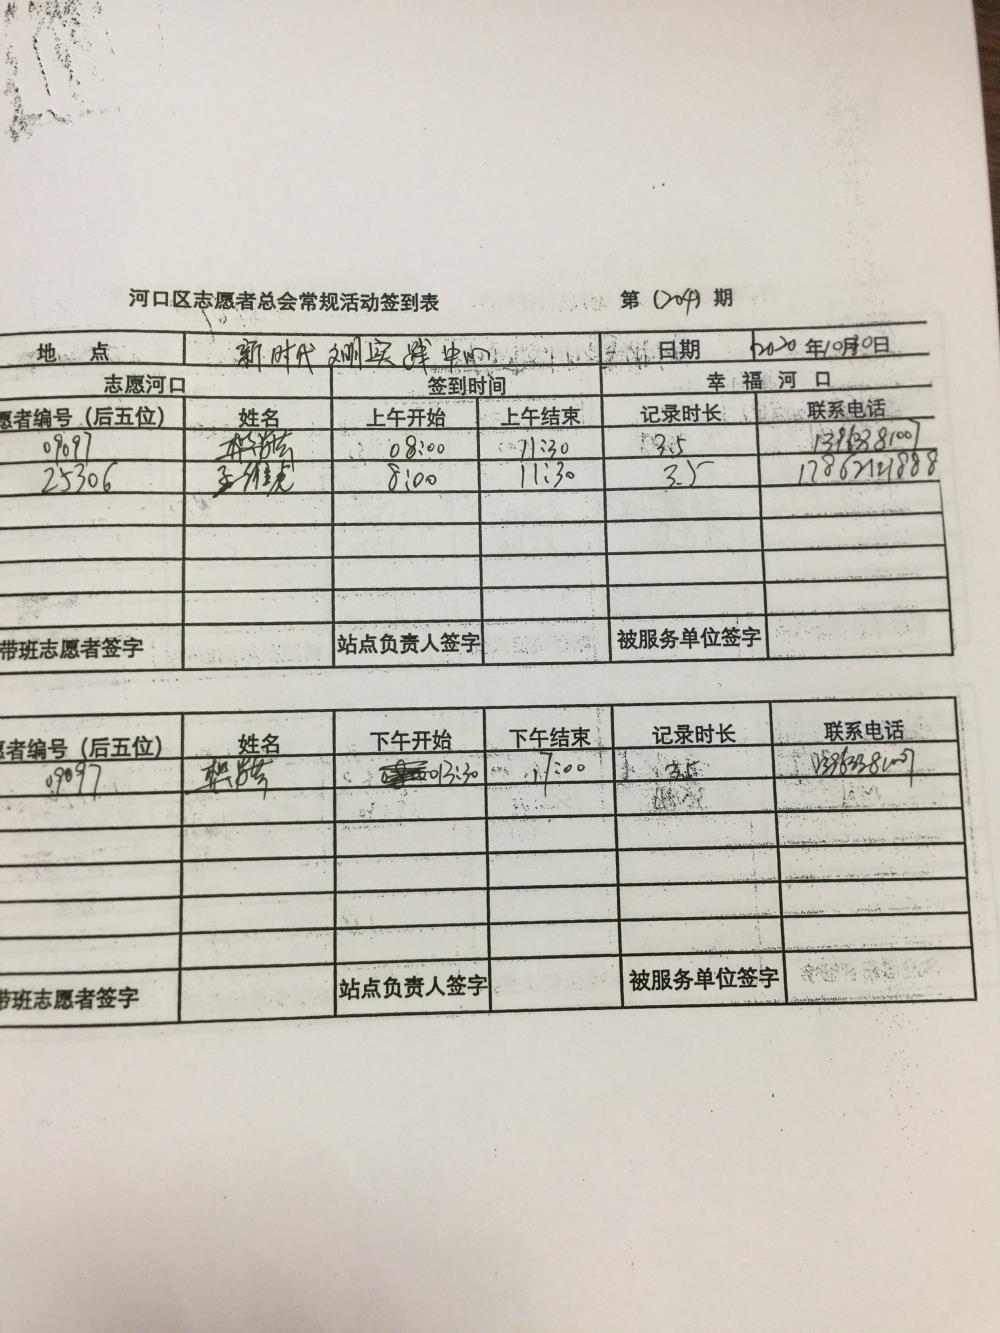 河口区志愿者总会常规活动签到表 第（204）期
地 点 新时代文明实践中心 日期 2020年10月30日
志愿河口 签到时间 幸 福 河 口
愿者编号（后五位） 姓名 上午开始 上午结束 记录时长 联系电话
09097 08:00 11:30 3.5
25306 8:00 11:30 3.5 17862121888
带班志愿者签字 站点负责人签字 被服务单位签字
愿者编号（后五位） 姓名 下午开始 下午结束 记录时长 联系电话
09097 13:30 17:00 3.5
带班志愿者签字 站点负责人签字 被服务单位签字